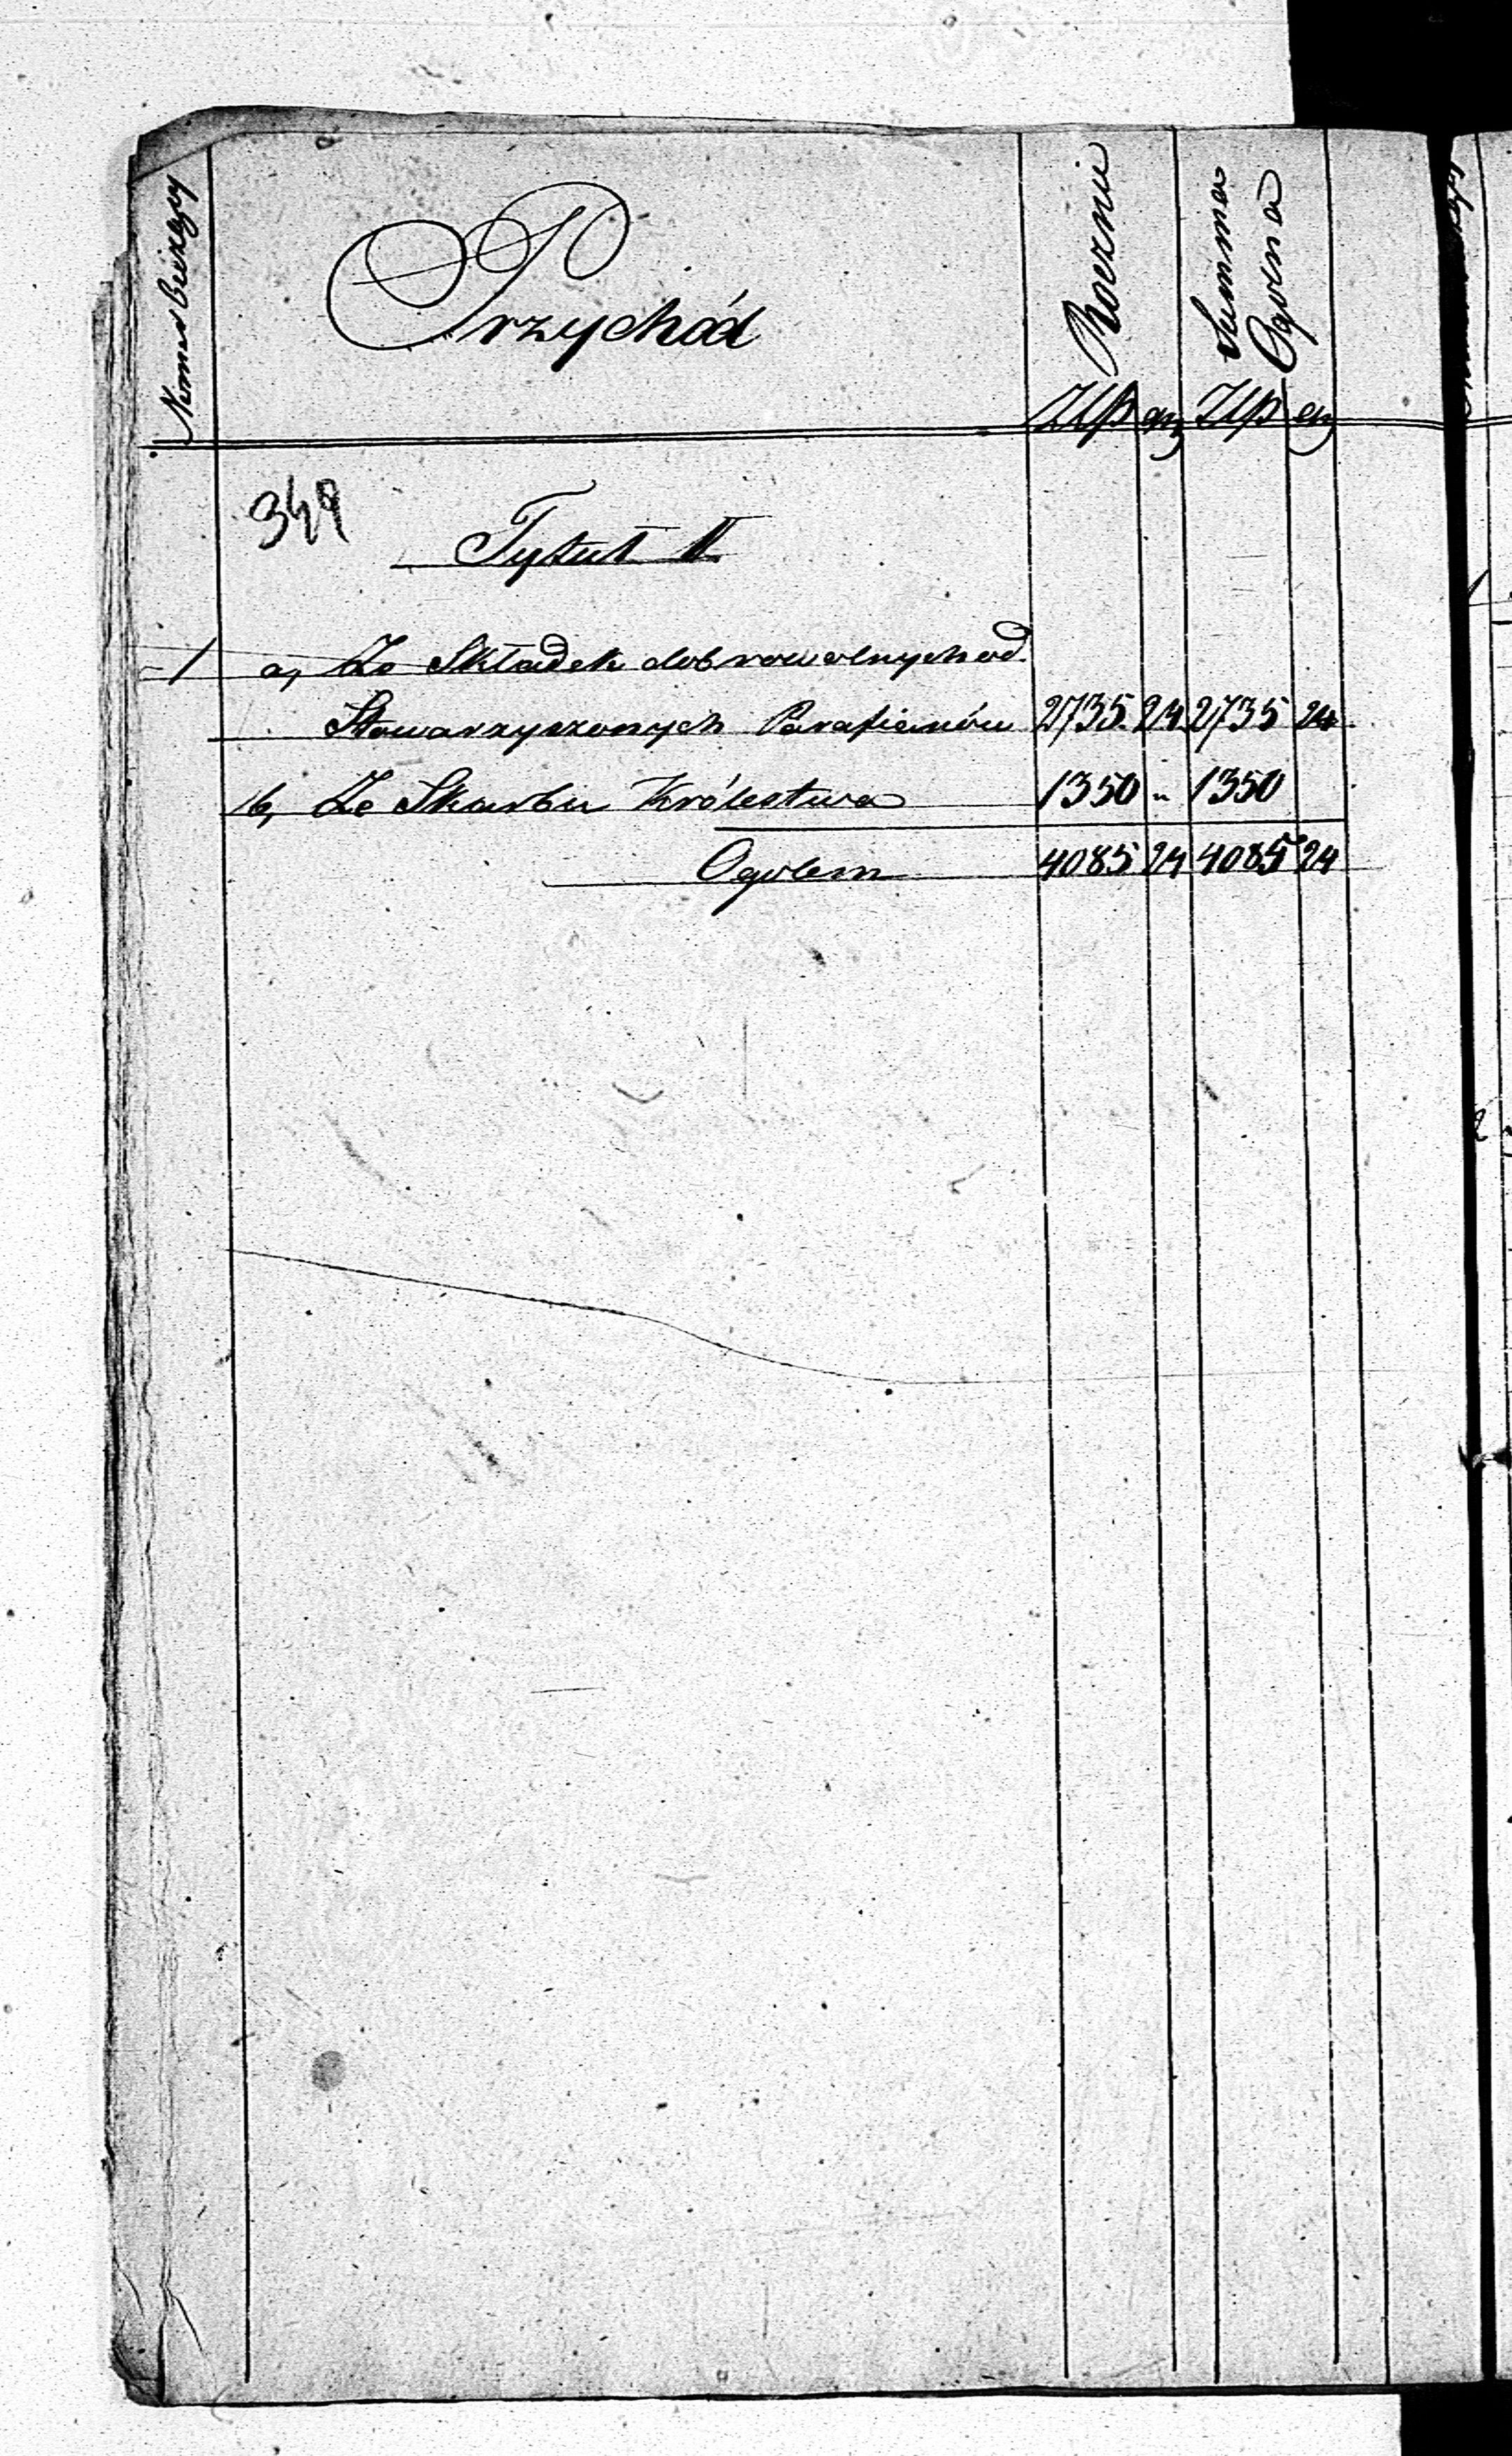 Numer Bieżący
Przychód
Rocznie
Summa
Ogolna
Złp gr Złp gr
349
Tytuł II
1 a, Ze Składek dobrowolnych od
Stowarzyszonych Parafianów 2735 24 2735 24
b, Ze Skarbu Królestwa 1350 „ 1350
Ogolem 4085 24 4085 24